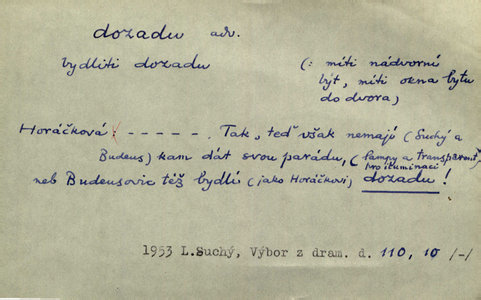 dozadu adv.
bydliti dozadu (: míti nádvorní
byt, míti okna bytu
do dvora)
Horáčková: - - - - - . Tak, teď však nemají (Suchý a
Budeus) kam dát svou parádu, (lampy a transparent
pro iluminaci
neb Budeusovic též bydlí (jako Horáčkovi) dozadu!
1953 L.Suchý, Výbor z dram. d. 110, 10 /-/